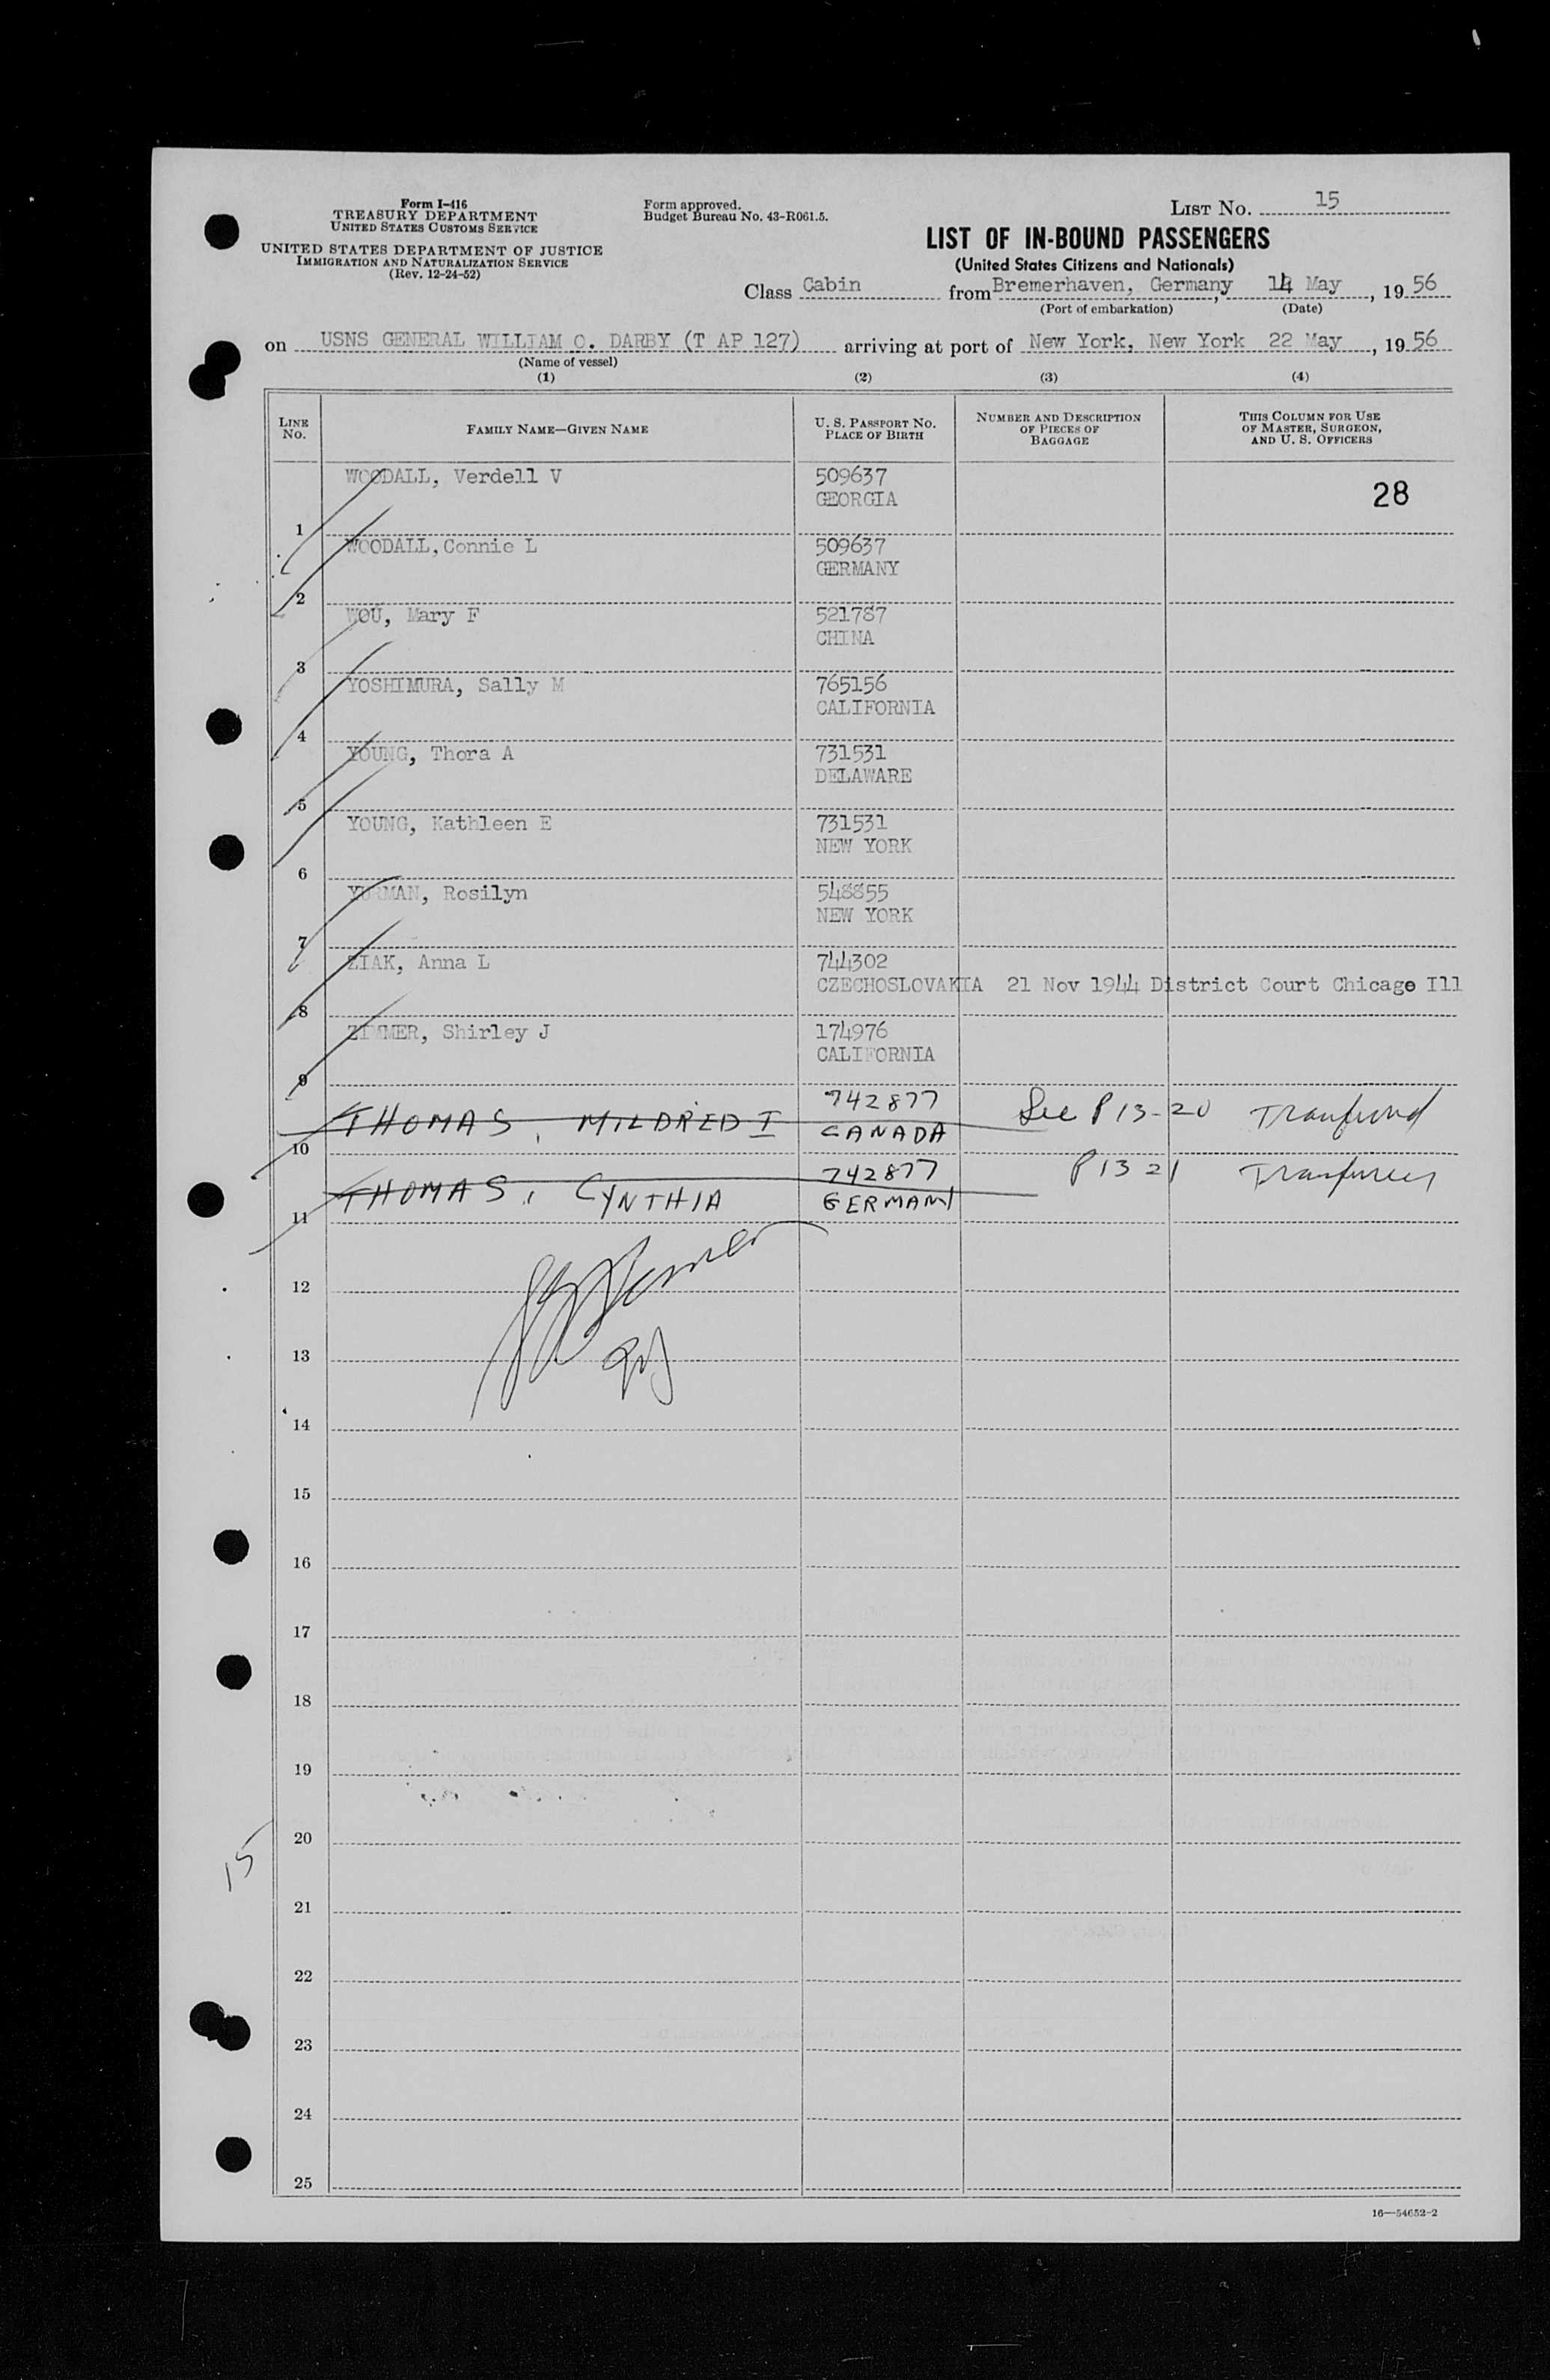 Form I-416
TREASURY DEPARTMENT
UNITED STATES CUSTOMS SERVICE
UNITED STATES DEPARTMENT OF JUSTICE
IMMIGRATION AND NATURALIZATION SERVICE
(Rev. 12-24-52)
Form approved.
Budget Bureau No. 43-R061.5.
LIST NO. 15
LIST OF IN-BOUND PASSENGERS
(United States Citizens and Nationals)
Class Cabin from Bremerhaven, Germany, 14 May, 1956
(Port of embarkation) (Date)
on USNS GENERAL WILLIAM O. DARBY (T AP 127) arriving at port of New York, New York 22 May, 1956
(Name of vessel)
(1) (2) (3) (4)
LINE NO. FAMILY NAME—GIVEN NAME U. S. PASSPORT NO. PLACE OF BIRTH NUMBER AND DESCRIPTION OF PIECES OF BAGGAGE THIS COLUMN FOR USE OF MASTER, SURGEON, AND U. S. OFFICERS
WOODALL, Verdell V 509637
GEORGIA 28
1
WOODALL, Connie L 509637
GERMANY
2
WOU, Mary F 521787
CHINA
3
YOSHIMURA, Sally M 765156
CALIFORNIA
4
YOUNG, Thora A 731531
DELAWARE
5
YOUNG, Kathleen E 731531
NEW YORK
6
YURMAN, Rosilyn 548855
NEW YORK
7
ZIAK, Anna L 744302
CZECHOSLOVAKIA 21 Nov 1944 District Court Chicago Ill
8
ZIMMER, Shirley J 174976
CALIFORNIA
9
THOMAS, MILDRED I 742877 See P 13-20
CANADA
10
THOMAS, CYNTHIA 742877 P 13 21
GERMANY
11
12
13
14
15
16
17
18
19
20
15
21
22
23
24
25
16—54652-2